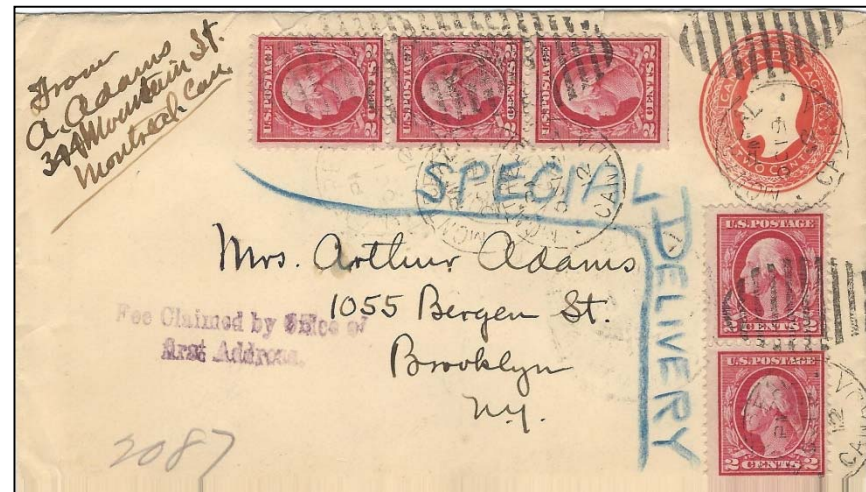 From
A. Adams
344 Mountain St.
Montreal Can
U.S. POSTAGE
2 CENTS 2
U.S. POSTAGE
2 CENTS 2
U.S. POSTAGE
2 CENTS 2
TWO CENTS
MONTREAL
CANADA
SPECIAL
DELIVERY
Mrs. Arthur Adams
1055 Bergen St.
Brooklyn
N.Y.
Fee Claimed by Office of
First Address.
U.S. POSTAGE
2 CENTS 2
U.S. POSTAGE
2 CENTS 2
2087